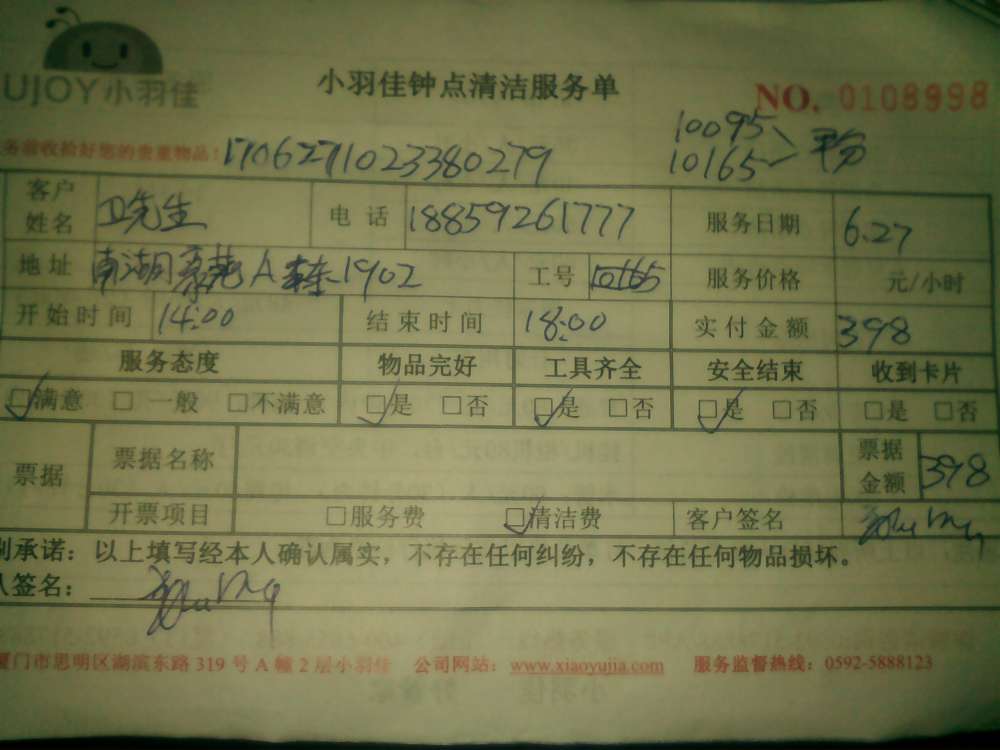 UJOY小羽佳
小羽佳钟点清洁服务单
NO. 0108998
务前收拾好您的贵重物品!
1706271023380279
10095
10165 平分
客户姓名 卫先生 电话 18859261777 服务日期 6.27
地址 南湖豪苑A栋1902 工号 10165 服务价格 元/小时
开始时间 14:00 结束时间 18:00 实付金额 398
服务态度 物品完好 工具齐全 安全结束 收到卡片
☑满意 □一般 □不满意 ☑是 □否 ☑是 □否 ☑是 □否 □是 □否
票据 票据名称 票据金额 398
开票项目 □服务费 ☑清洁费 客户签名
别承诺：以上填写经本人确认属实，不存在任何纠纷，不存在任何物品损坏。
人签名：
厦门市思明区湖滨东路 319 号 A 幢 2 层小羽佳 公司网站：www.xiaoyujia.com 服务监督热线：0592-5888123